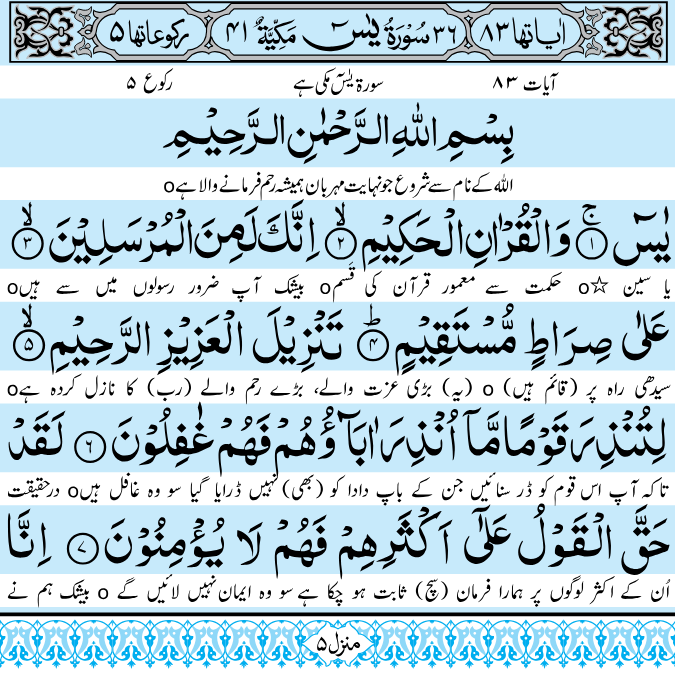 اٰیاتها ٨٣ ٣٦ سُوْرَةُ یٰسٓ مَکِّیَّةٌ ٤١ رکوعاتها ٥
آیات ٨٣ سورۃ یٰسٓ مکی ہے رکوع ٥
بِسْمِ اللّٰهِ الرَّحْمٰنِ الرَّحِیْمِ
اللہ کے نام سے شروع جو نہایت مہربان ہمیشہ رحم فرمانے والا ہےo
یٰسٓ ۚ‏﴿١﴾ وَالْقُرْاٰنِ الْحَکِیْمِ ۙ﴿٢﴾ اِنَّكَ لَمِنَ الْمُرْسَلِیْنَ ۙ﴿٣﴾
یا سین ☆o حکمت سے معمور قرآن کی قَسمo بیشک آپ ضرور رسولوں میں سے ہیںo
عَلٰی صِرَاطٍ مُّسْتَقِیْمٍ ؕ﴿٤﴾ تَنْزِیْلَ الْعَزِیْزِ الرَّحِیْمِ ۙ﴿٥﴾
سیدھی راہ پر (قائم ہیں) o (یہ) بڑی عزت والے، بڑے رحم والے (رب) کا نازل کردہ ہےo
لِتُنْذِرَ قَوْمًا مَّاۤ اُنْذِرَ اٰبَآؤُهُمْ فَهُمْ غٰفِلُوْنَ ﴿٦﴾ لَقَدْ
تاکہ آپ اس قوم کو ڈر سنائیں جن کے باپ دادا کو (بھی) نہیں ڈرایا گیا سو وہ غافل ہیںo درحقیقت
حَقَّ الْقَوْلُ عَلٰۤی اَکْثَرِهِمْ فَهُمْ لَا یُؤْمِنُوْنَ ﴿٧﴾ اِنَّا
اُن کے اکثر لوگوں پر ہمارا فرمان (سچ) ثابت ہو چکا ہے سو وہ ایمان نہیں لائیں گے o بیشک ہم نے
منزل ٥